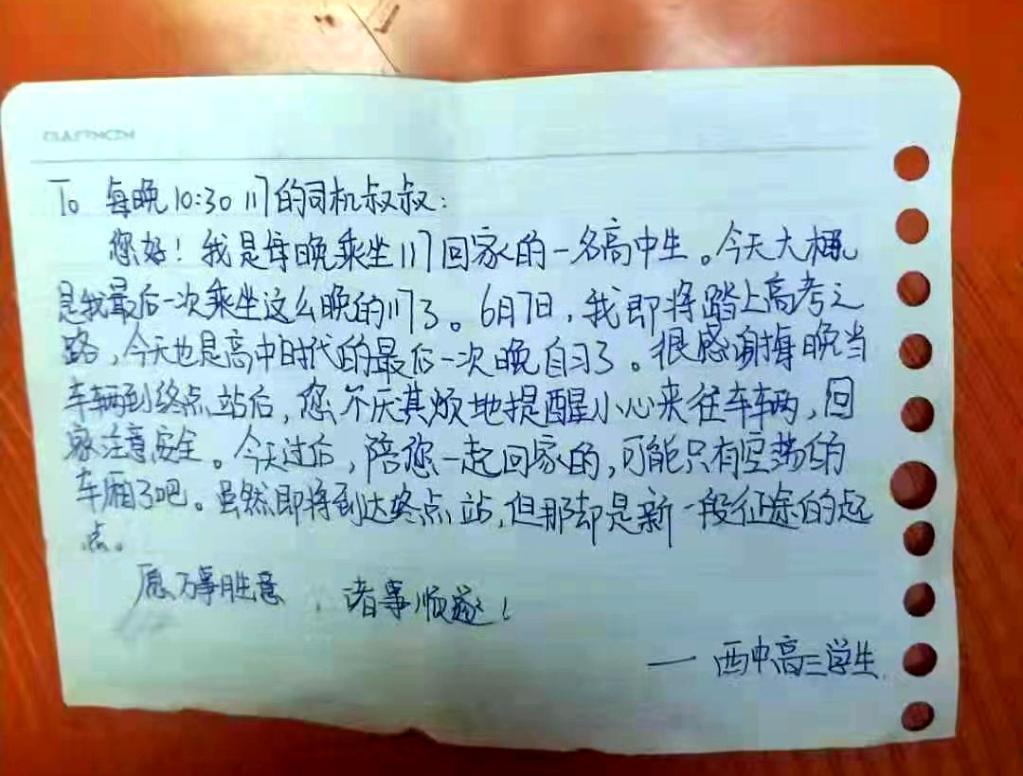 To 每晚10:30 117的司机叔叔:
您好！我是每晚乘坐117回家的一名高中生。今天大概
是我最后一次乘坐这么晚的117了。6月7日，我即将踏上高考之
路，今天也是高中时代的最后一次晚自习了。很感谢每晚当
车辆到终点站后，您不厌其烦地提醒小心来往车辆，回
家注意安全。今天过后，陪您一起回家的，可能只有空荡的
车厢了吧。虽然即将到达终点站，但那却是新一段征途的起
点。
愿万事胜意，诸事顺遂！
— 西中高三学生